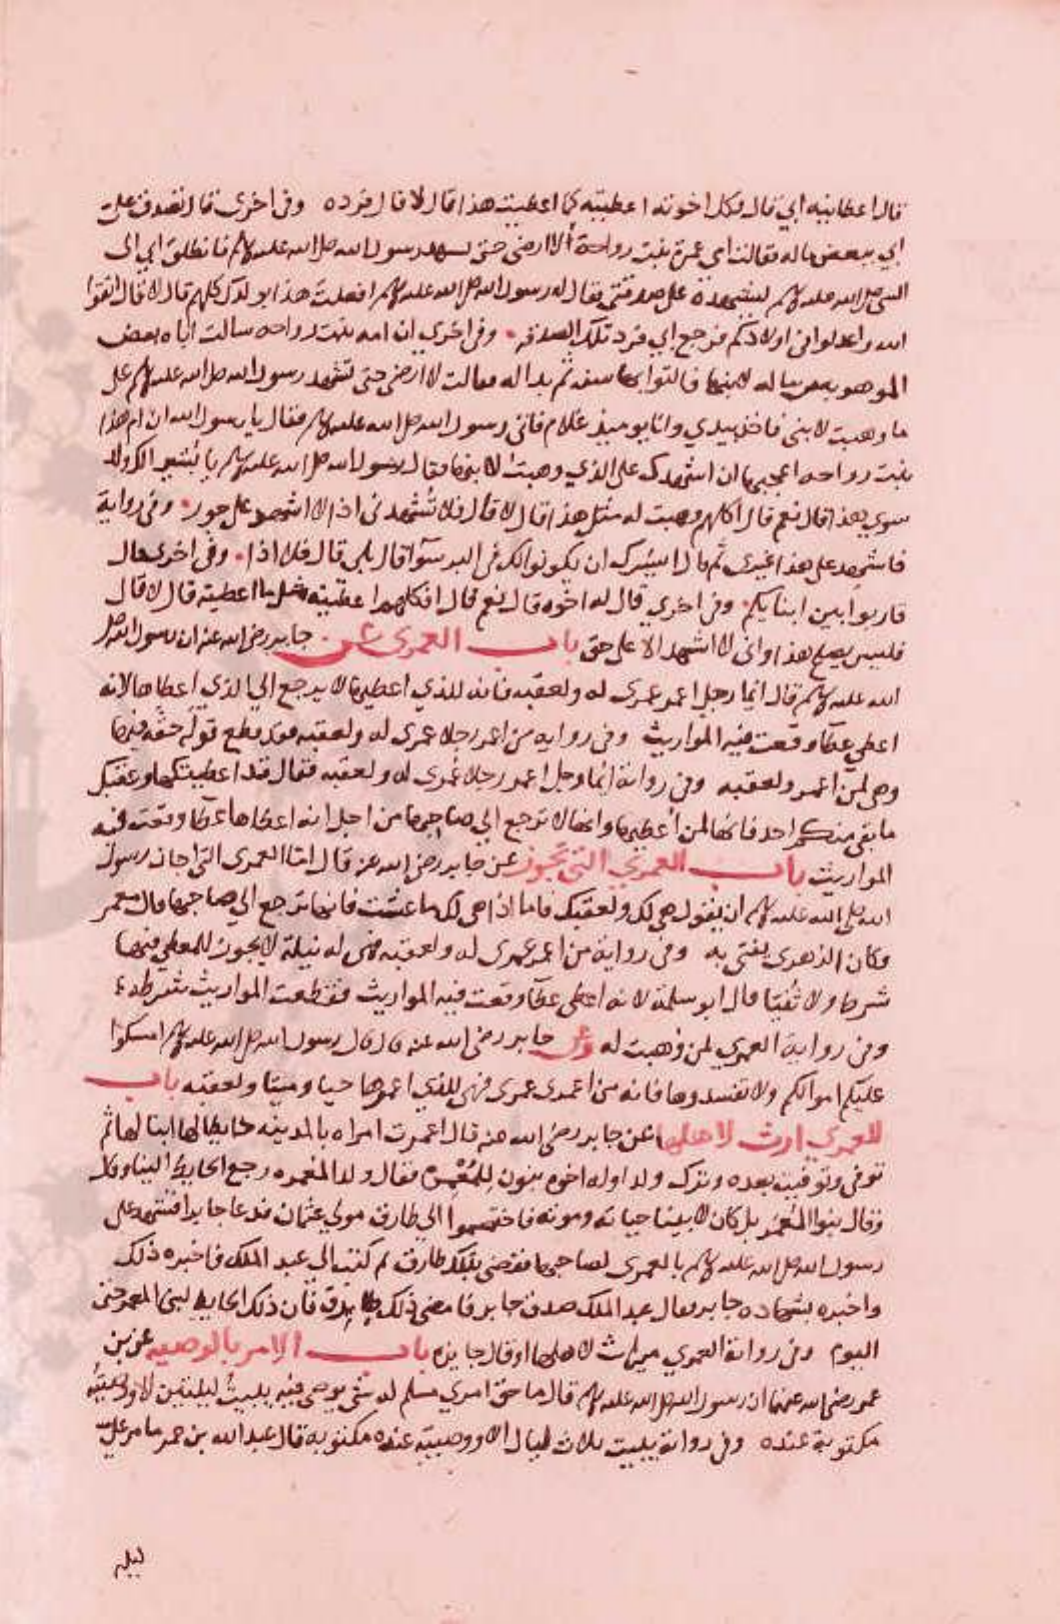 قال اعطانيه ابي قال فكل اخوته اعطيته كما اعطيت هذا قال لا قال فرده وفي اخرى قال تصدق علي
ابي ببعض ماله فقالت امي عمرة بنت رواحة ألا ارضى حتى تشهد رسول الله صلى الله عليه وسلم فانطلق ابي الى
النبي صلى الله عليه وسلم ليشهده على صدقتي فقال له رسول الله صلى الله عليه وسلم افعلت هذا بولدك كلهم قال لا قال اتقوا
الله واعدلوا في اولادكم فرجع ابي فرد تلك الصدقة وفي اخرى ان امه بنت رواحه سالت اباه بعض
الموهوبه من ماله لابنها فالتوا بها سنه ثم بدا له فقالت لا ارضى حتى تشهد رسول الله صلى الله عليه وسلم على
ما وهبت لابني فاخذ بيدي وانا يوميذ غلام فاتى رسول الله صلى الله عليه وسلم فقال يا رسول الله ان ام هذا
بنت رواحه اعجبها ان اشهدك على الذي وهبت لابنها فقال رسول الله صلى الله عليه وسلم يا بشير الك ولد
سوى هذا قال نعم قال اكلهم وهبت له مثل هذا قال لا قال فلا تشهدني اذا لا اشهد على جور وفي رواية
فاشهد على هذا غيري ثم قال ايسرك ان يكونوا لك في البر سوآ قال بلى قال فلا اذا وفي اخرى قال
قاربوا بين ابنايكم وفي اخرى قال له اخوه قال نعم قال افكلهم اعطيته مثل ما اعطيته قال لا قال
فليس يصلح هذا واني لا اشهد الا على حق باب العمرى عن جابر رضي الله عنه ان رسول الله صلى
الله عليه وسلم قال ايما رجل اعمر عمرى له ولعقبه فانه للذي اعطيها لا يرجع الى الذي اعطاها لانه
اعطى عطآ وقعت فيه المواريث وفي روايه من اعمر رجلا عمرى له ولعقبه فقد قطع قوله حقه فيها
وهي لمن اعمر ولعقبه وفي رواية ايما رجل اعمر رجلا عمرى له ولعقبه فقال قد اعطيتكها وعقبك
ما بقي منكم احد فانها لمن اعطيها وانها لا ترجع الى صاحبها من اجل انه اعطاها عطآ وقعت فيه
المواريث باب العمرى التي تجوز عن جابر رضي الله عنه قال انما العمرى التي اجاز رسول
الله صلى الله عليه وسلم ان يقول هي لك ولعقبك فاما اذا هي لك ما عشت فانها ترجع الى صاحبها قال معمر
وكان الزهري يفتي به وفي رواية من اعمر عمرى له ولعقبه فهي له بتلة لا يجوز للمعطي فيها
شرط ولا ثنيا قال ابو سلمة لانه اعطى عطآ وقعت فيه المواريث فقطعت المواريث شرطه
وفي رواية العمرى لمن وهبت له وعن جابر رضي الله عنه قال قال رسول الله صلى الله عليه وسلم امسكوا
عليكم اموالكم ولا تفسدوها فانه من اعمرى عمرى فهي للذي اعمرها حيا وميتا ولعقبه باب
العمرى ارث لاهلها عن جابر رضي الله عنه قال اعمرت امراه بالمدينه حايطا لها ابنا لها ثم
توفي وتوفيت بعده وترك ولدا وله اخوه بنون للمعمرة فقال ولد المعمره رجع الحايط الينا وقال
فقال بنوا المعمر بل كان لابينا حياته وموته فاختصموا الى طارق مولى عثمان فدعا جابرا فشهد على
رسول الله صلى الله عليه وسلم بالعمرى لصاحبها فقضى بذلك طارق ثم كتب الى عبد الملك فاخبره ذلك
واخبره بشهاده جابر فقال عبد الملك صدق جابر فامضى ذلك طارق فان ذلك الحايط لبني المعمر حتى
اليوم وفي رواية العمرى ميراث لاهلها او قال جايزه باب الامر بالوصيه عن بن
عمر رضي الله عنهما ان رسول الله صلى الله عليه وسلم قال ما حق امرئ مسلم له شي يوصي فيه يبيت ليلتين الا ووصيته
مكتوبة عنده وفي رواية يبيت ثلاث ليال الا ووصيته عنده مكتوبة قال عبد الله بن عمر ما مر علي
ليلة